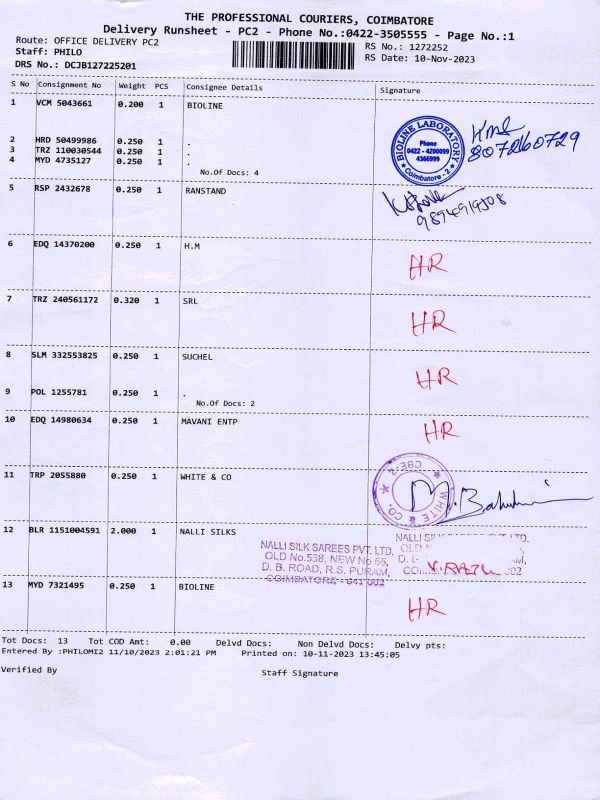 THE PROFESSIONAL COURIERS, COIMBATORE
Delivery Runsheet - PC2 - Phone No.:0422-3505555 - Page No.:1
Route: OFFICE DELIVERY PC2
RS No.: 1272252
Staff: PHILO
RS Date: 10-Nov-2023
DRS No.: DCJB127225201
S No Consignment No Weight PCS Consignee Details Signature
1 VCM 5043661 0.200 1 BIOLINE
2 HRD 50499986 0.250 1 .
3 TRZ 110030544 0.250 1 .
4 MYD 4735127 0.250 1 .
No.Of Docs: 4
BIOLINE LABORATORY
Phone
0422 - 4200099
4366999
Coimbatore - 2
8072160729
5 RSP 2432678 0.250 1 RANSTAND
9894919508
6 EDQ 14370200 0.250 1 H.M HR
7 TRZ 240561172 0.320 1 SRL HR
8 SLM 332553825 0.250 1 SUCHEL HR
9 POL 1255781 0.250 1 .
No.Of Docs: 2
10 EDQ 14980634 0.250 1 MAVANI ENTP HR
11 TRP 2055880 0.250 1 WHITE & CO
WHITE & CO. CBE-2
12 BLR 1151004591 2.000 1 NALLI SILKS
NALLI SILK SAREES PVT. LTD.
OLD No.538, NEW No.66,
D. B. ROAD, R.S. PURAM,
COIMBATORE - 641 002
13 MYD 7321495 0.250 1 BIOLINE HR
Tot Docs: 13 Tot COD Amt: 0.00 Delvd Docs: Non Delvd Docs: Delvy pts:
Entered By :PHILOMI2 11/10/2023 2:01:21 PM Printed on: 10-11-2023 13:45:05
Verified By Staff Signature